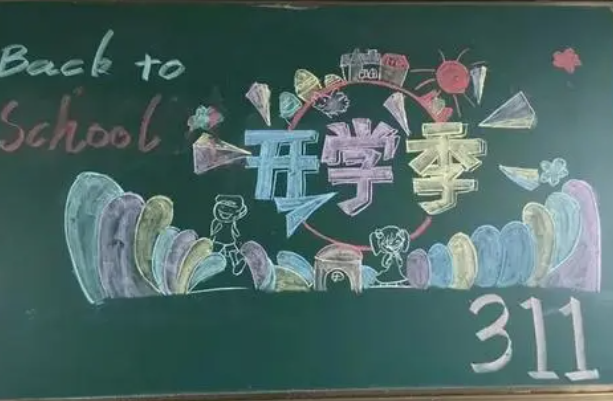 Back to
School
开学季
311